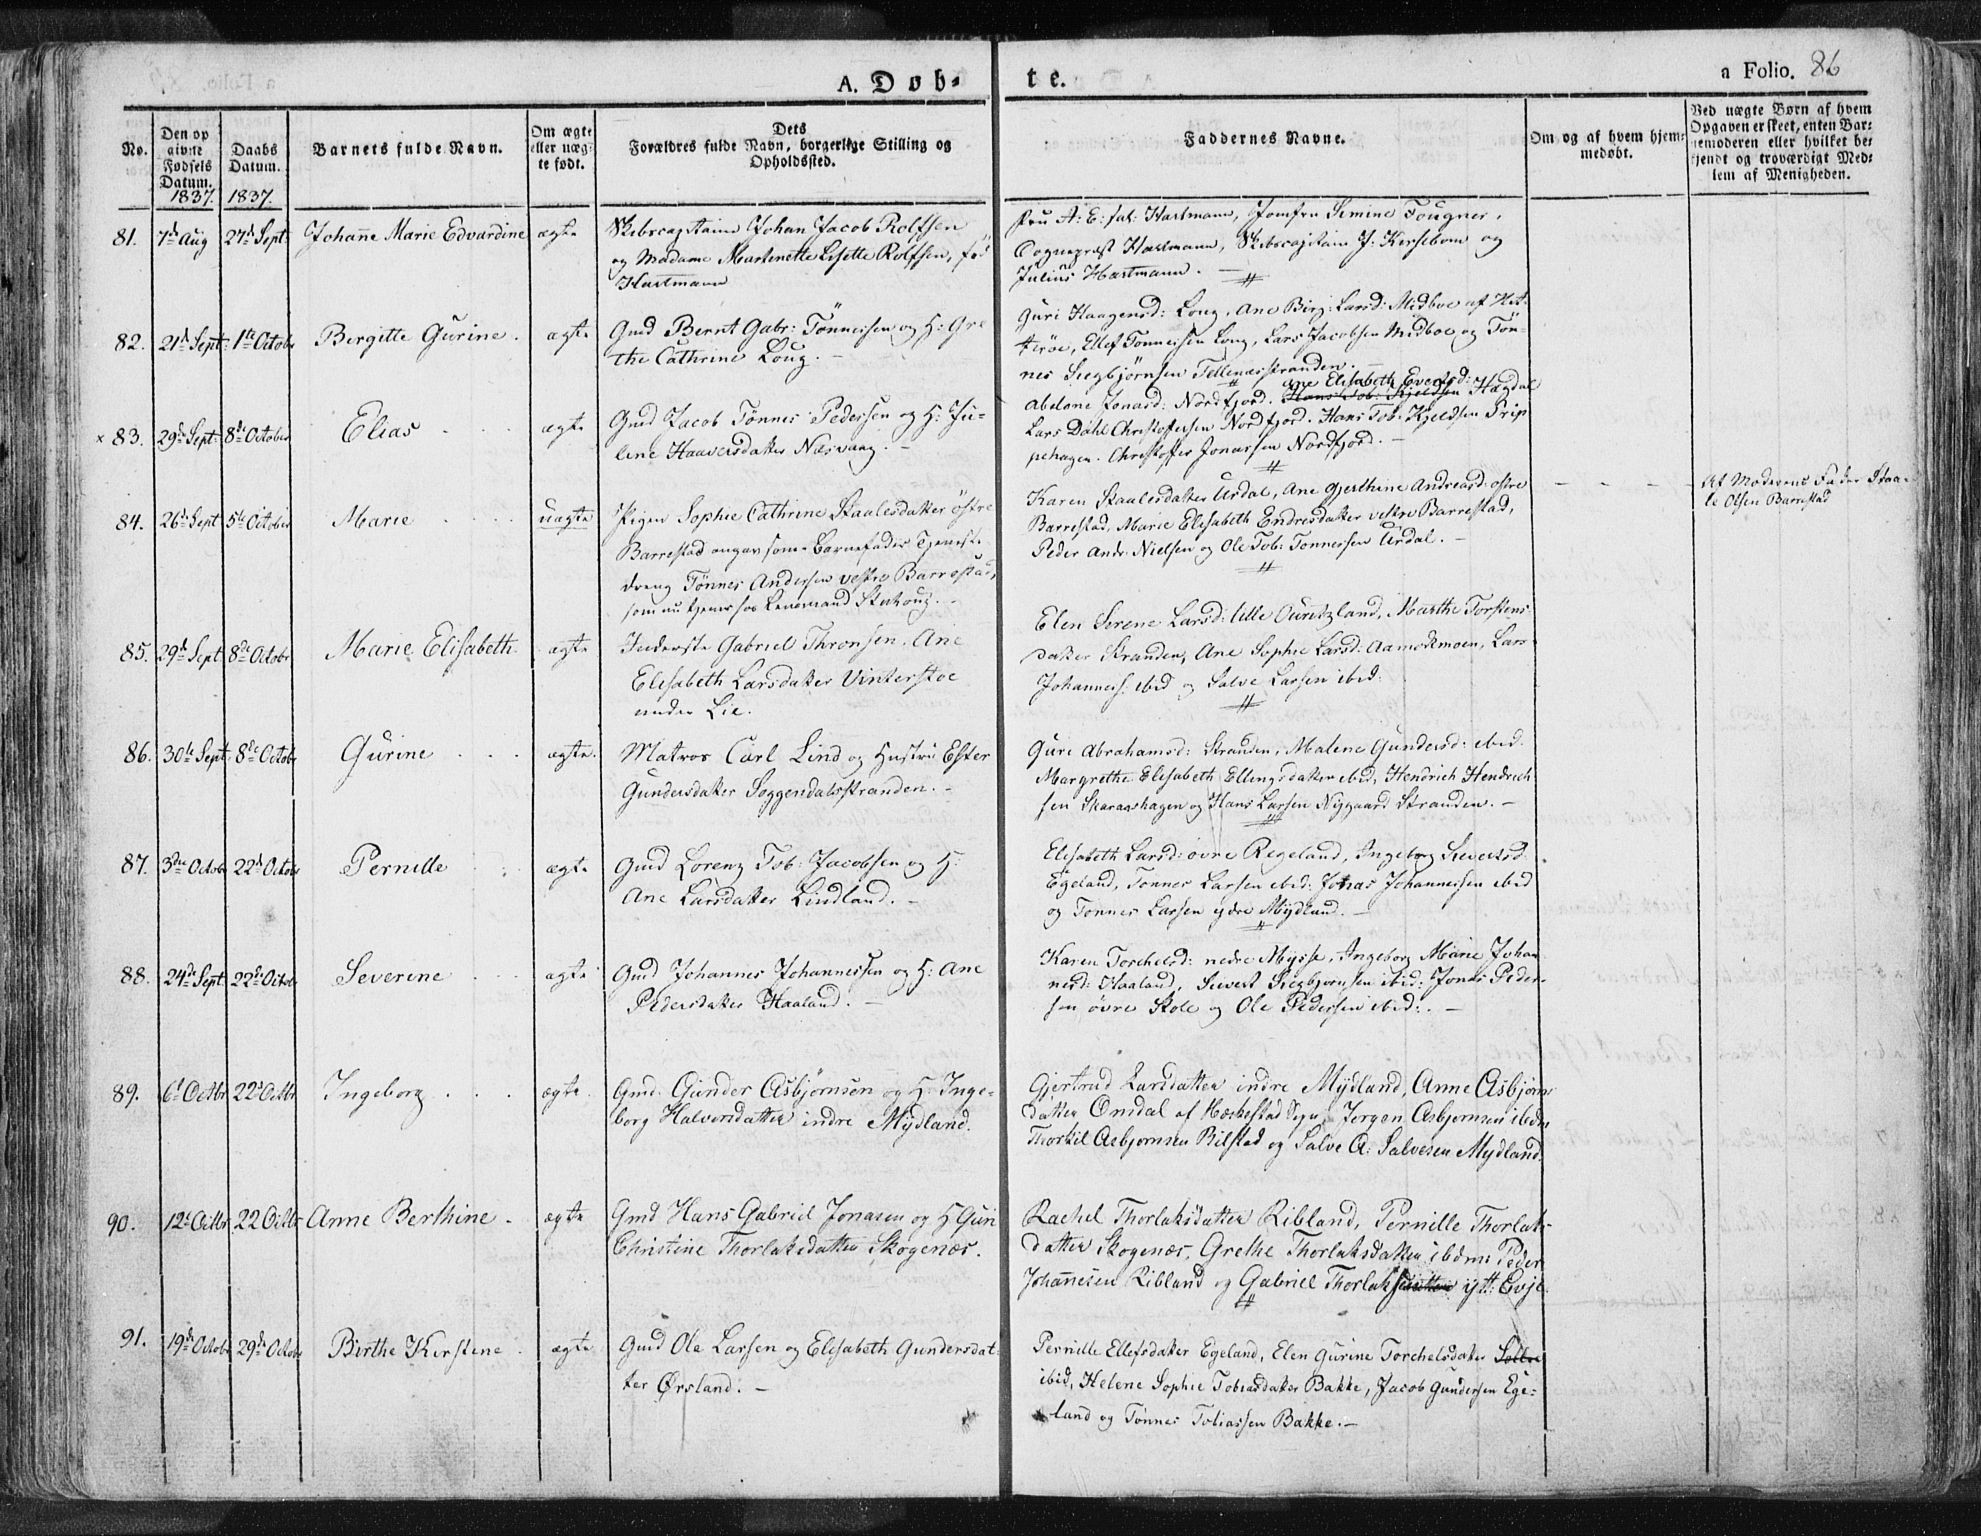 A. Døb-
te.
a Folio. 86
No.
Den op
givne
Fødsels
Datum.
1837.
Daabs
Datum.
1837.
Barnets fulde Navn.
Om ægte
eller uæg-
te født.
Dets
Forældres fulde Navn, borgerlige Stilling og
Opholdssted.
Faddernes Navne.
Om og af hvem hjem-
medøbt.
Ved uægte Børn af hvem
Opgaven er skeet, enten Bar-
nemoderen eller hvilket be-
kjendt og troværdigt Med-
lem af Menigheden.
81. 7d Aug 27d Sept: Johane Marie Edvardine ægte
Skibscapitaine Johan Jacob Rolfsen
og Madame Martinette Lisette Rolfsen, fød
Hartmann
Fru A: E: sal: Hartmann, Jomfru Semine Tougner,
Sognepræst Hartmann, Skibscapitain J. Kerseboom og
Julius Hartmann. —
82. 21d Sept: 1ste Octobr Bergitte Gurine. ægte
Gmd Bernt Gabr: Tönnessen og H: Gre
the Cathrine Loug. —
Guri Haagensd: Loug, Ane Birg: Larsd: Midboe af Hit-
terøe, Ellef Tonnesen Loug, Lars Jacobsen Midboe og Tön-
nes Siegbjörnsen Tellenæsstranden. —
× 83. 29de Sept: 8de October Elias ægte
Gmd Jacob Tønnes Pedersen og H: Ju-
liene Haaversdatter Næsvaag. —
Ane Elisabeth Evertsd:
Abelone Jonasd: Nordfjord. Hans Tob: Kjeldsen Hægdal
Lars Dahl Christoffersen Nordfjord. Hans Tob: Kjeldsen Trip
pehagen. Christoffer Jonassen Nordfjord. —
84. 26d Sept 5te October Marie uægte
Pigen Sophie Cathrine Staalesdatter östre
Barrestad angav som Barnefader Tjeneste
dreng Tönnes Andersen vestre Barrestad,
som nu tjener hos Lensmand
Karen Staalesdatter Urdal, Ane Gjerthine Andreasd: ostre
Barrestad, Marie Elisabeth Endresdatter vestre Barrestad,
Peder Andr: Nielsen og Ole Tob: Tonnessen Urdal. —
Af Moderens Fader Staa-
le Olsen Barrestad
85. 29d Sept 8de Octobr Marie Elisabeth. ægte
Inderste Gabriel Thronsen. Ane
Elisabeth Larsdatter Vinterstoe
under Lie.
Elen Serene Larsd: lille Ouretzland, Marthe Torstens
datter Stranden, Ane Sophie Larsd: Aamodtmoen, Lars
Johanness: ibid og Salve Larsen ibid.
86. 30te Sept: 8de Octobr Gurine ægte.
Matros Carl Lind og Hustru Ester
Gundersdatter Soggendalsstranden. —
Guri Abrahamsd: Stranden, Malene Gundersd: ibid.
Margrethe Elisabeth Ellingsdatter ibid, Hendrich Hendrich
sen Skaraashagen og Hans Larsen Nygaard Stranden. —
87. 3die Octobr 22d Octobr Pernille ægte
Gmd Lorenz Tob: Jacobsen og H:
Ane Larsdatter Lindland. —
Elisabeth Larsd: övre Regeland, Ingeborg Sievertsd:
Egeland, Tonnes Larsen ibid: Jonas Johannessen ibid
og Tonnes Larsen ydre Mydland. —
88. 24de Sept: 22de Octobr Severine ægte
Gmd Johannes Johannessen og H: Ane
Pedersdatter Haaland. —
Karen Torchelsd: nedre Mysse, Ingeborg Marie Johan
nesd: Haaland, Sievert Siegbjornsen ibid: Jonas Peder-
sen övre Skole og Ole Pedersen ibid:. —
89. 6t Octbr 22d Octbr Ingeborg ægte.
Gmd. Gunder Asbjörnsen og H: Inge-
borg Halvorsdatter indre Mydland.
Gjertrud Larsdatter indre Mydland, Anne Asbjörns
datter Omdal af Hæskestad Sogn, Jørgen Asbjornsen ibdm
Thorkil Asbjornsen Bilstad og Salve A: Salvesen Mydland.
90. 12t Octbr 22 Octbr Anne Berthine. ægte
Gmd Hans Gabriel Jonasen og H Guri
Christine Thorlaksdatter Skogenæs.
Rachel Thorlaksdatter Ribland, Pernille Thorlaks-
datter Skogenæs, Grethe Thorlaksdatter ibdm, Peder
Johannesen Ribland og Gabriel Thorlaksdatter ytt: Evje.
91. 19de Octobr 29de Octobr Birthe Kirstene. ægte
Gmd Ole Larsen og Elisabeth Gundersdat-
ter Ørsland. —
Pernille Ellefsdatter Egeland, Elen Gurine Torchelsdatter
ibid, Helene Sophie Tobiasdatter Bakke, Jacob Gundersen Ege-
land og Tönnes Tobiassen Bakke. —